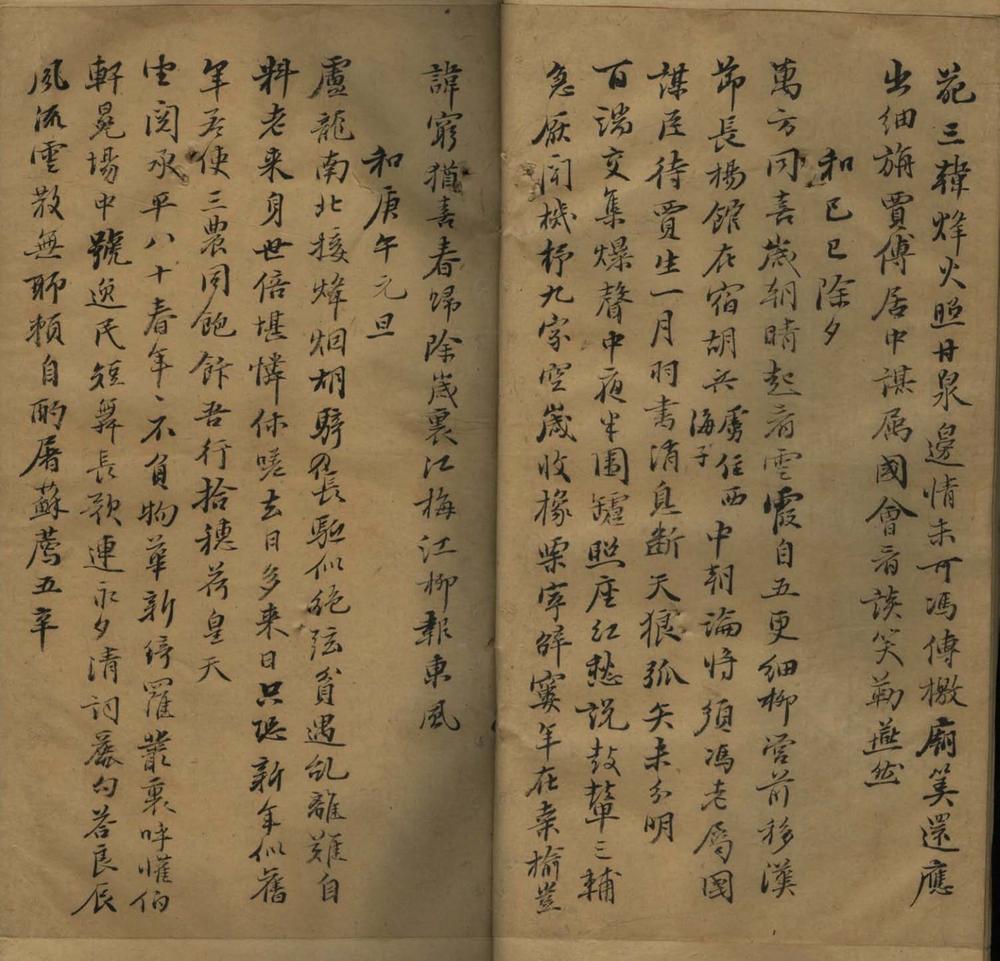 苑三韓烽火照甘泉邊情未可馮傳檄廟筭還應
出細旃賈傅居中謀属國會看談笑勒燕然
和己巳除夕
萬方同喜歲朝晴起看雲霞自五更細柳营前移漢
節長楊館在宿胡兵
虜住西
海子
中朝論将須馮老屬國
謀臣待賈生一月羽書消息断天狼弧矢未分明
百端交集爆聲中夜半圍罏照座紅愁說鼓鼙三輔
急厭聞機杼九家空歲收橡栗寧辞窶年在桑榆豈
諱窮猶喜春歸除歲裏江梅江柳報東風
和庚午元旦
盧龍南北接烽烟胡騎長驅似絕弦貧遇乱離難自
料老来身世倍堪憐休嗟去日多来日只恐新年似舊
年若使三農同飽飯吾行拾穗荷皇天
生閱承平八十春年〻不負物華新綺羅叢裏呼懽伯
軒冕場中號逸民短舞長歌連永夕清詞麗句答良辰
風流雲散無聊賴自酌屠蘇薦五辛